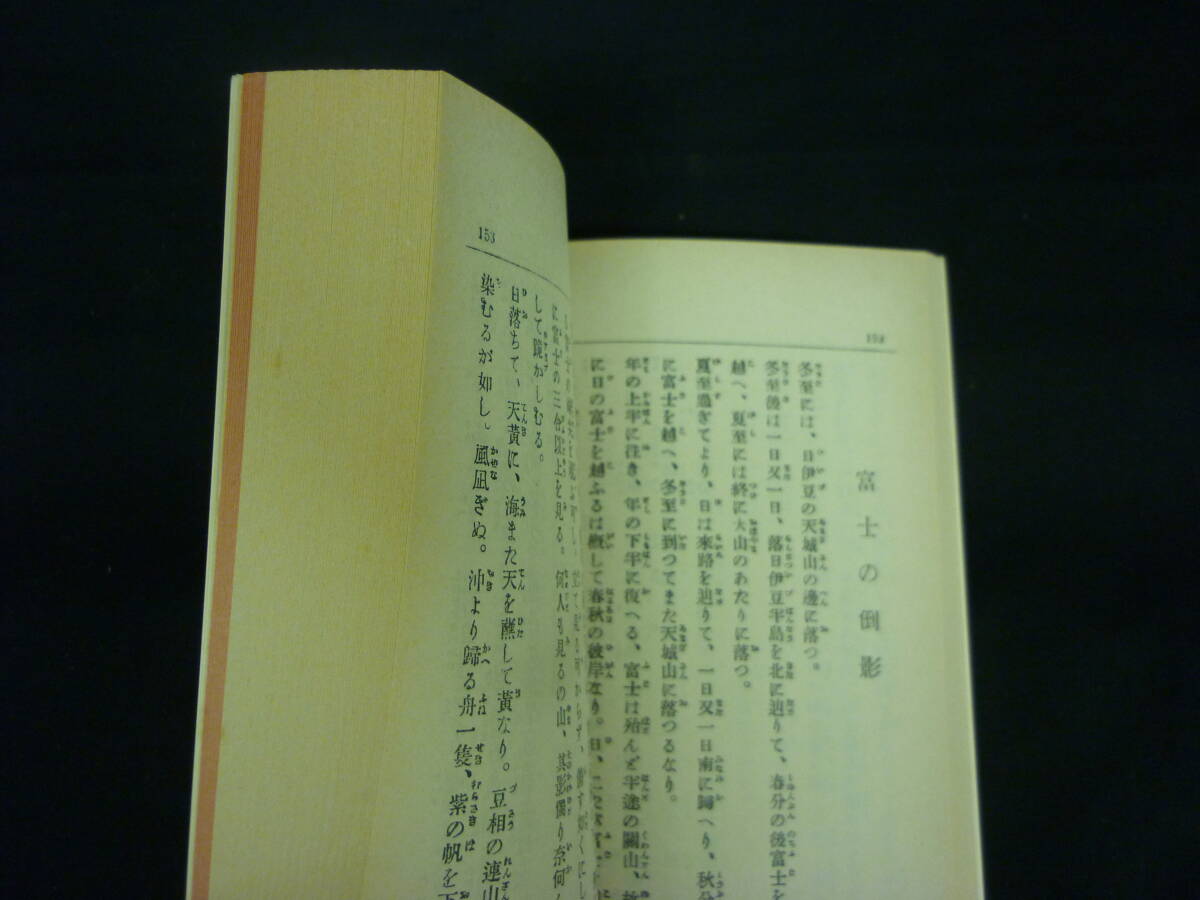 富士の倒影
冬至には、日伊豆の天城山の邊に落つ。
冬至後は一日又一日、落日伊豆半島を北に辿りて、春分の後富士を
越へ、夏至には終に大山のあたりに落つ。
夏至過ぎてより、日は來路を辿りて、一日又一日南に歸へり、秋分
に富士を越へ、冬至に到つてまた天城山に落つるなり。
年の上半に往き、年の下半に復へる、富士は殆んど半途の關山、故
に日の富士を越ふるは槪して春秋の彼岸なり。
153
に富士の三合以上を見る。何人も見るの山、其影獨り奈何
して跪かしむる。
日落ちて、天黃に、海また天を蘸して黃なり。豆相の連山
染むるが如し。風凪ぎぬ。沖より歸る舟一隻、紫の帆を